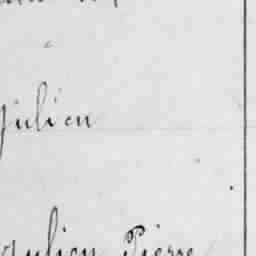 Julien
Julien Pierre